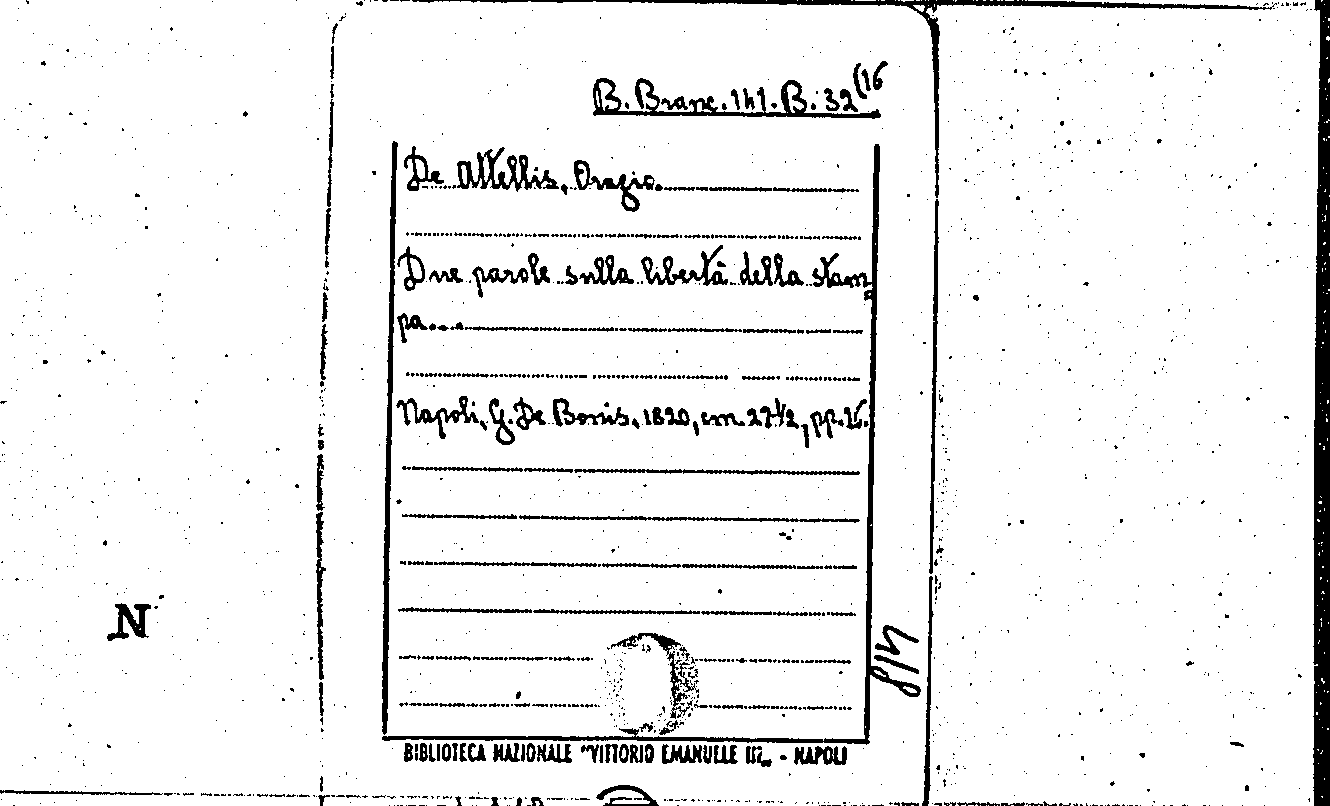 B. Branc. 141. B. 32 (16
De Attellis, Orazio.
Due parole sulla libertà della stam=
pa....
Napoli, G. De Bonis, 1820, cm. 27 1/2, pp. 16.
N
BIBLIOTECA NAZIONALE "VITTORIO EMANUELE III„ - NAPOLI